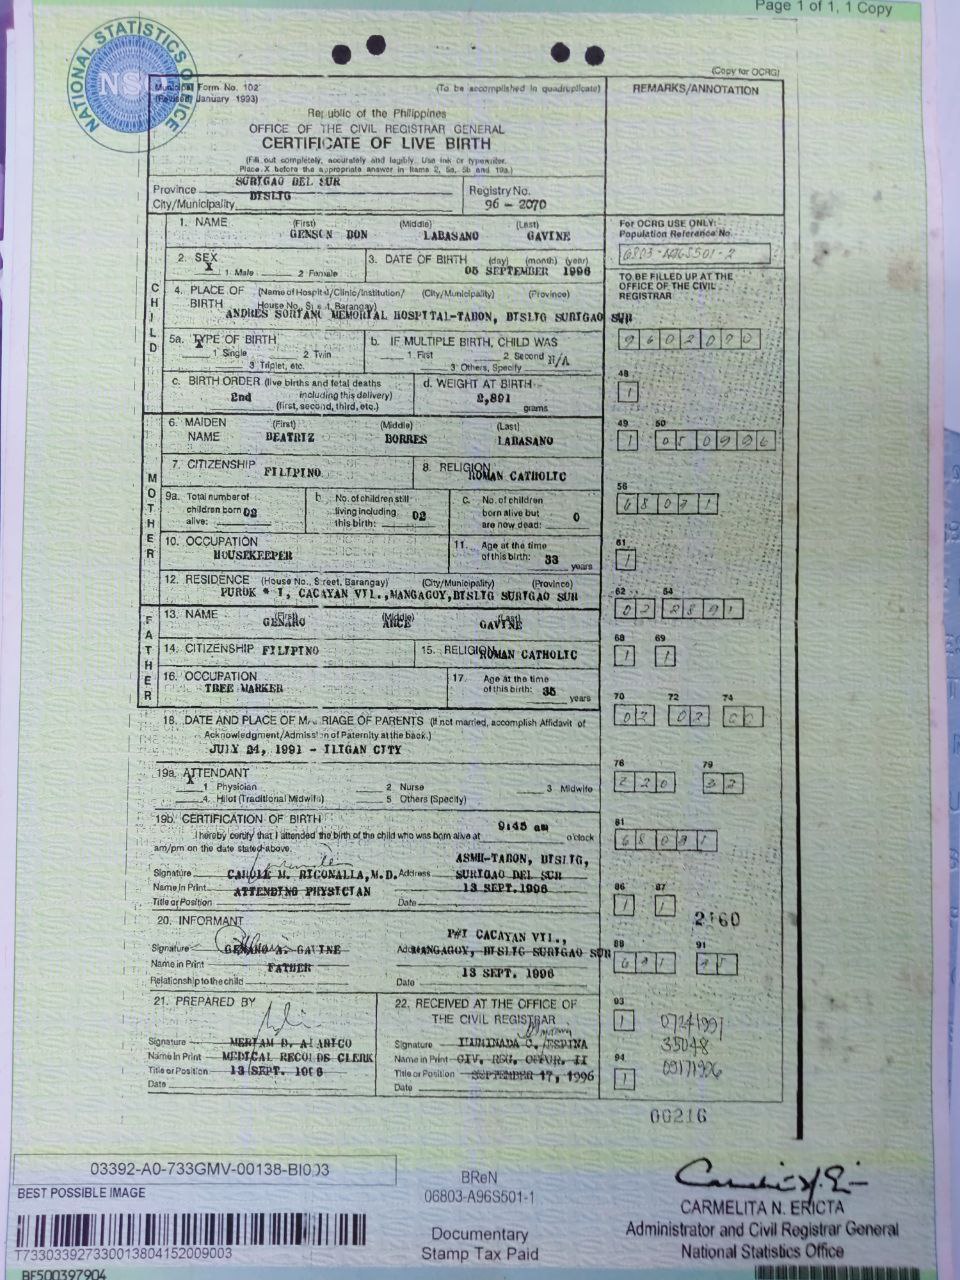 Page 1 of 1, 1 Copy
NATIONAL STATISTICS OFFICE
NSO
(Copy for OCRG)
Municipal Form No. 102
(Revised, January 1993)
(To be accomplished in quadruplicate)
REMARKS/ANNOTATION
Republic of the Philippines
OFFICE OF THE CIVIL REGISTRAR GENERAL
CERTIFICATE OF LIVE BIRTH
(Fill out completely, accurately and legibly. Use ink or typewriter.
Place X before the appropriate answer in Items 2, 5a, 5b and 19a.)
Province SURIGAO DEL SUR
City/Municipality BISLIG
Registry No.
96 - 2070
1. NAME (First) (Middle) (Last)
GENSON DON LABASANO GAVINE
For OCRG USE ONLY:
Population Reference No.
6803-A96S501-2
2. SEX
X 1 Male 2 Female
3. DATE OF BIRTH (day) (month) (year)
05 SEPTEMBER 1996
TO BE FILLED UP AT THE
OFFICE OF THE CIVIL
REGISTRAR
CHILD
4. PLACE OF BIRTH (Name of Hospital/Clinic/Institution/ (City/Municipality) (Province)
House No., Street, Barangay)
ANDRES SORIANO MEMORIAL HOSPITAL-TABON, BISLIG SURIGAO SUR
5a. TYPE OF BIRTH
X 1 Single 2 Twin
3 Triplet, etc.
b. IF MULTIPLE BIRTH, CHILD WAS
1 First 2 Second N/A
3 Others, Specify
9602070
c. BIRTH ORDER (live births and fetal deaths
including this delivery)
2nd
(first, second, third, etc.)
d. WEIGHT AT BIRTH
2,891
grams
48
1
MOTHER
6. MAIDEN NAME (First) (Middle) (Last)
BEATRIZ BORRES LABASANO
49 50
1 050996
7. CITIZENSHIP FILIPINO
8. RELIGION ROMAN CATHOLIC
9a. Total number of
children born
alive: 02
b. No. of children still
living including
this birth: 02
c. No. of children
born alive but
are now dead: 0
56
10. OCCUPATION
HOUSEKEEPER
11. Age at the time
of this birth: 33
years
61
1
12. RESIDENCE (House No., Street, Barangay) (City/Municipality) (Province)
PUROK # I, CACAYAN VIL.,MANGAGOY,BISLIG SURIGAO SUR
62 64
02 2891
FATHER
13. NAME (First) (Middle) (Last)
GENARO ARCE GAVINE
14. CITIZENSHIP FILIPINO
15. RELIGION ROMAN CATHOLIC
68 69
1 1
16. OCCUPATION
TREE MARKER
17. Age at the time
of this birth: 35
years
70 72 74
02 02 00
18. DATE AND PLACE OF MARRIAGE OF PARENTS (If not married, accomplish Affidavit of
Acknowledgment/Admission of Paternity at the back.)
JULY 24, 1991 - ILIGAN CITY
19a. ATTENDANT
X 1 Physician 2 Nurse 3 Midwife
4. Hilot (Traditional Midwife) 5 Others (Specify)
76 79
220
19b. CERTIFICATION OF BIRTH
I hereby certify that I attended the birth of the child who was born alive at 9:45 am o'clock
am/pm on the date stated above.
81
Signature
Name in Print CAROLE M. RICONALLA, M.D.
Title or Position ATTENDING PHYSICIAN
Address ASMH-TABON, BISLIG,
SURIGAO DEL SUR
Date 13 SEPT.1996
86 87
1 1
2160
20. INFORMANT
Signature
Name in Print GENARO A. GAVINE
Relationship to the child FATHER
Address P#I CACAYAN VIL.,
MANGAGOY, BISLIG SURIGAO SUR
Date 13 SEPT. 1996
88 91
21. PREPARED BY
Signature
Name in Print
Title or Position MEDICAL RECORDS CLERK
Date 13 SEPT. 1996
22. RECEIVED AT THE OFFICE OF
THE CIVIL REGISTRAR
Signature
Name in Print ILUMINADA C. ESPINA
Title or Position CIV. REG. OFFCR. II
Date SEPTEMBER 17, 1996
93
1
07241991
35048
09171996
94
1
00216
03392-A0-733GMV-00138-BI003
BEST POSSIBLE IMAGE
T733033927330013804152009003
BF500397904
BReN
06803-A96S501-1
Documentary
Stamp Tax Paid
CARMELITA N. ERICTA
Administrator and Civil Registrar General
National Statistics Office